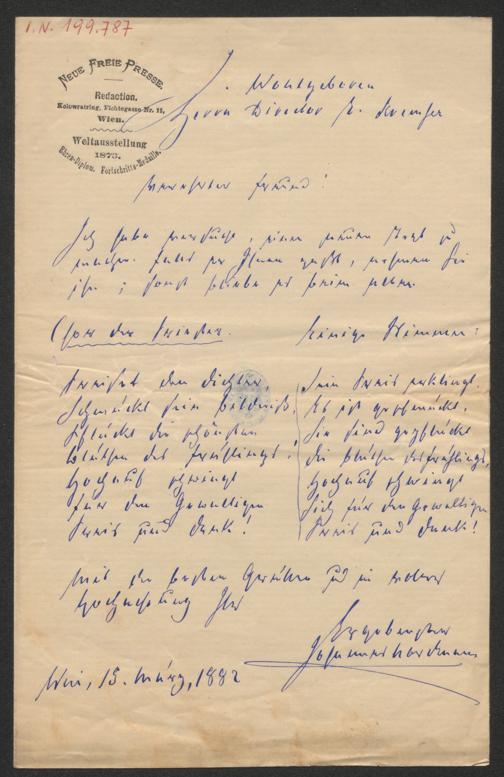 I.N. 199.787
NEUE FREIE PRESSE.
Redaction.
Kolowratring, Fichtegasse Nr. 11,
Wien.
Weltausstellung
1873.
Ehren-Diplom. Fortschritts-Medaille.
Wohlgeboren
Herrn Director E. Kremser
Verehrter Freund!
Ich habe versucht, einen neuen Text zu
machen. Falls er Ihnen gefällt, nehmen Sie
ihn; sonst bleibe es beim alten.
Chor der Priester.
Einige Stimmen:
Preiset den Dichter
Schmückt sein Bildniß.
Pflückt die schönsten
Blüthen des Frühlings.
Hochauf schwingt
für den Gewaltigen
Preis und Dank!
Sein Preis erklingt.
Es ist geschmückt.
Sie sind gepflückt
die Blüthen des Frühlings,
Hochauf schwingt
Sich für den Gewaltigen
Preis und Dank!
Mit den besten Grüßen und in
Hochachtung Ihr
Ergebenster
Johannes Nordmann
Wien, 15. März, 1882